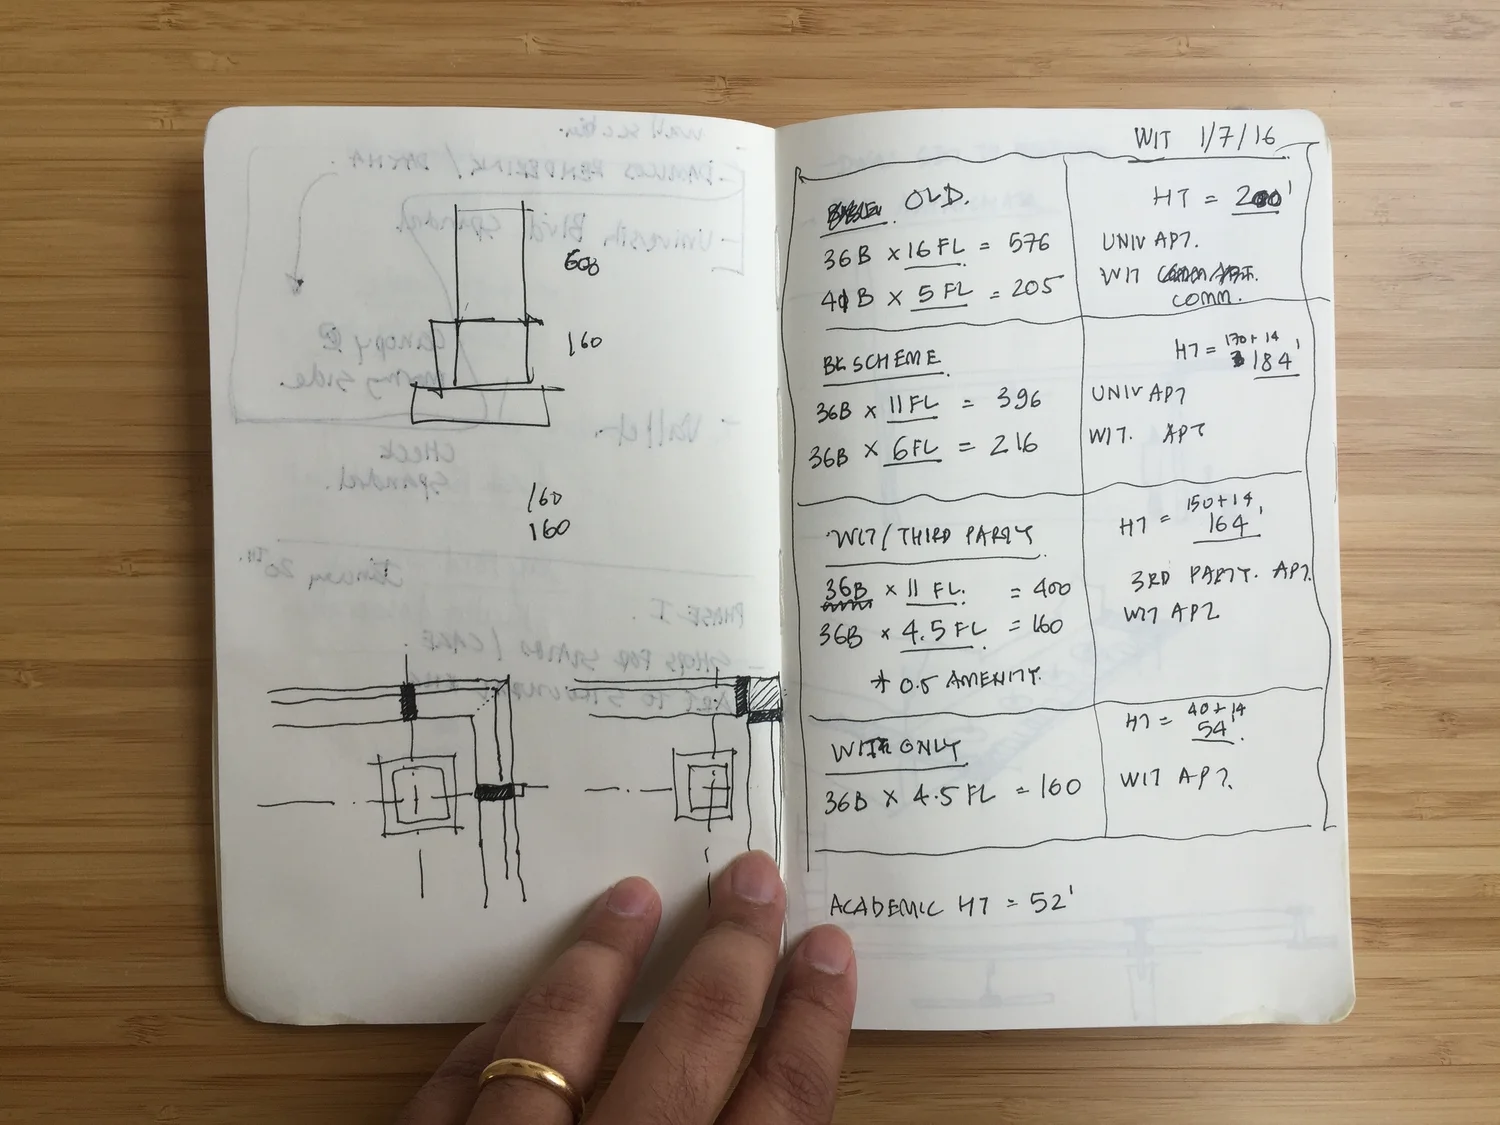 600
160
160
160
WIT 1/7/16
OLD.
36B × 16 FL = 576
41B × 5 FL = 205
HT = 200'
UNIV APT.
WIT
COMM.
BK SCHEME
36B × 11 FL = 396
36B × 6 FL = 216
170+14
HT = 184'
UNIV APT
WIT. APT
WIT/THIRD PARTY
36B × 11 FL. = 400
36B × 4.5 FL = 160
* 0.5 AMENITY.
150+14
HT = 164'
3RD PARTY. APT.
WIT APT
WIT ONLY
36B × 4.5 FL = 160
40+14
HT = 54'
WIT APT.
ACADEMIC HT = 52'